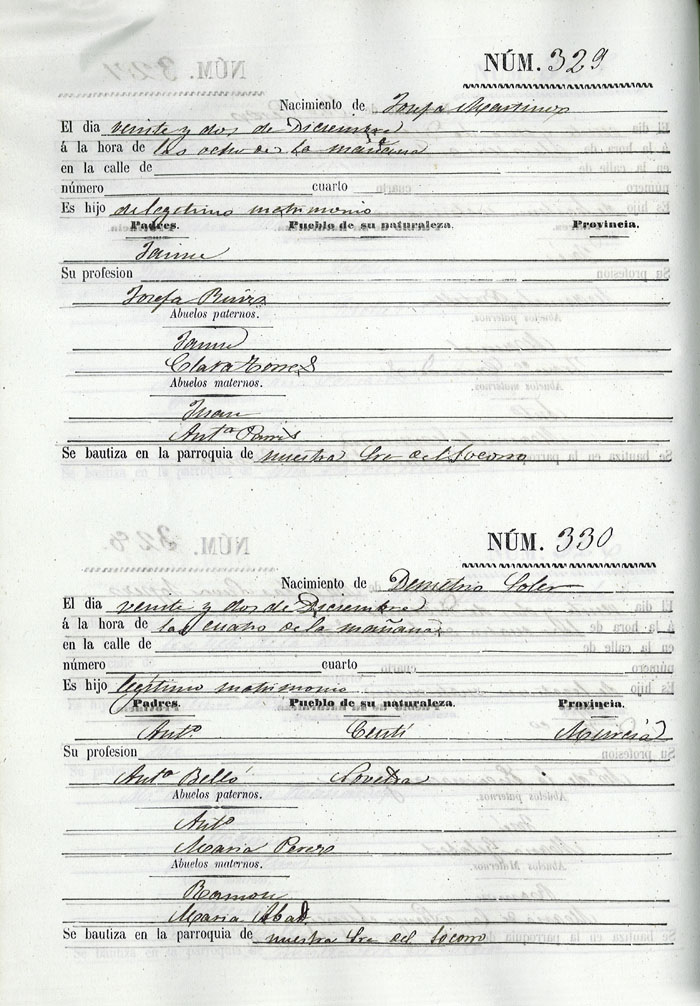 NÚM. 329
Nacimiento de Josefa Martinez
El dia veinte y dos de Diciembre
á la hora de las ocho de la mañana
en la calle de
número cuarto
Es hijo de legitimo matrimonio
Padres. Pueblo de su naturaleza. Provincia.
Jaime
Su profesion
Josefa
Abuelos paternos.
Jaime
Clara Torres
Abuelos maternos.
Juan
Antª
Se bautiza en la parroquia de nuestra Sra del Socorro
NÚM. 330
Nacimiento de Demetrio Soler
El dia veinte y dos de Diciembre
á la hora de las cuatro de la mañana
en la calle de
número cuarto
Es hijo legitimo matrimonio
Padres. Pueblo de su naturaleza. Provincia.
Antº Ceutí Murcia
Su profesion
Antª Belló Novelda
Abuelos paternos.
Antº
Maria Perez
Abuelos maternos.
Ramon
Maria Abad
Se bautiza en la parroquia de nuestra Sra del Socorro